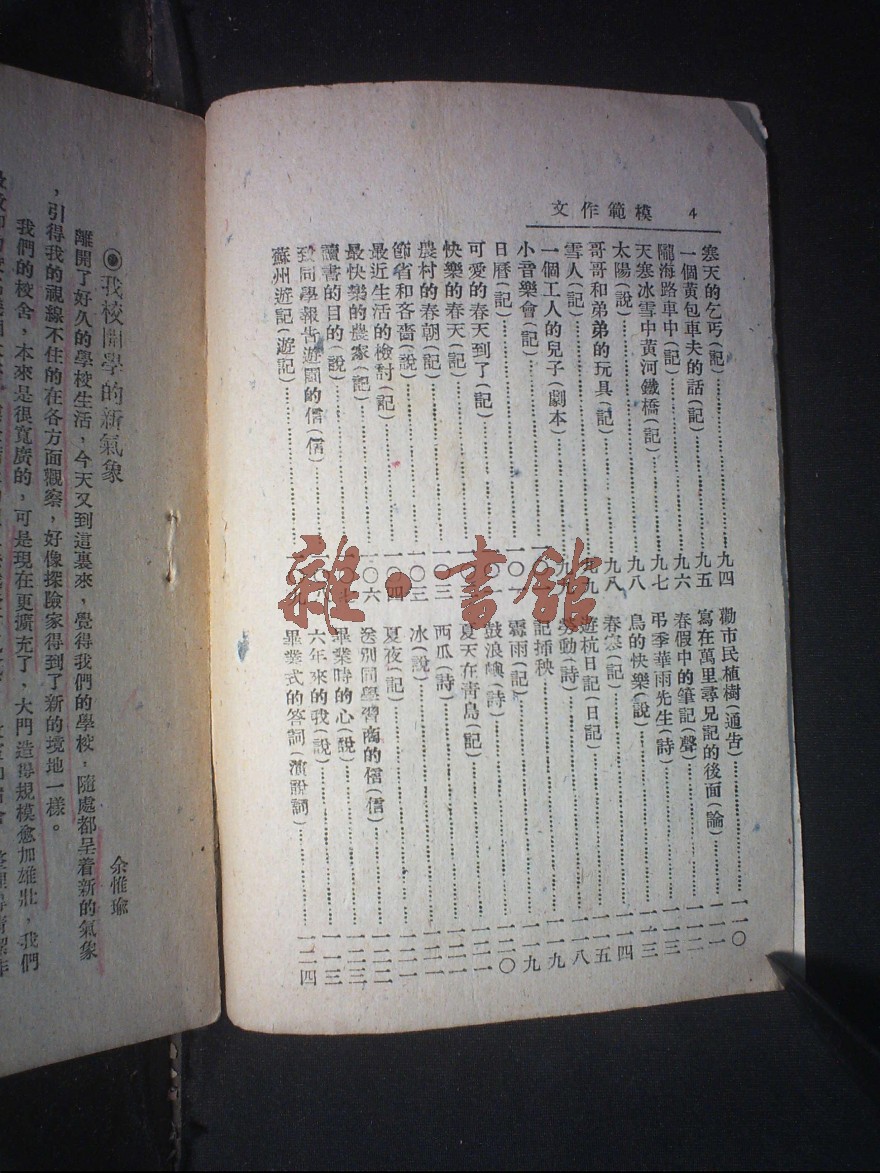 4 模範作文
寒天的乞丐(記)…………九四
一個黃包車夫的話(記)…………九五
隴海路車中(記)…………九六
天寒冰雪中黃河鐵橋(記)…………九七
太陽(說)…………九八
哥哥和弟弟的玩具(記)…………九九
雪人(記)…………九九
一個工人的兒子(劇本)…………
小音樂會(記)…………
日曆(記)…………
可愛的春天到了(記)…………
快樂的春天(記)…………一〇三
農村的春朝(記)…………一〇三
節省和吝嗇(說)…………一〇四
最近生活的檢討(記)…………一〇六
最快樂的農家(記)…………
讀書的目的(說)…………
致同學報告遊閩的信(信)…………
蘇州遊記(遊記)…………
勸市民植樹(通告)…………一一〇
寫在萬里尋兄記的後面(論)…………一一一
春假中的筆記(聲)…………一一二
弔季華雨先生(詩)…………一一三
鳥的快樂(說)…………一一三
春寒(記)…………一一四
遊杭日記(日記)…………一一五
勞動(詩)…………一一八
記插秧…………一一九
霉雨(記)…………一一九
鼓浪嶼(詩)…………一二〇
夏天在青島(記)…………一二一
西瓜(詩)…………一二一
冰(說)…………一二一
夏夜(記)…………一二二
送別同學習商的信(信)…………一二二
畢業時的心(說)…………一二三
六年來的我(說)…………一二三
畢業式的答詞(演說詞)…………一二四
◉我校開學的新氣象
余惟瑜
離開了好久的學校生活，今天又到這裏來，覺得我們的學校，隨處都呈着新的氣象
，引得我的視線不住的在各方面觀察，好像探險家得到了新的境地一樣。
我們的校舍，本來是很寬廣的，可是現在更擴充了、大門造得規模愈加雄壯，我們
雜·書館